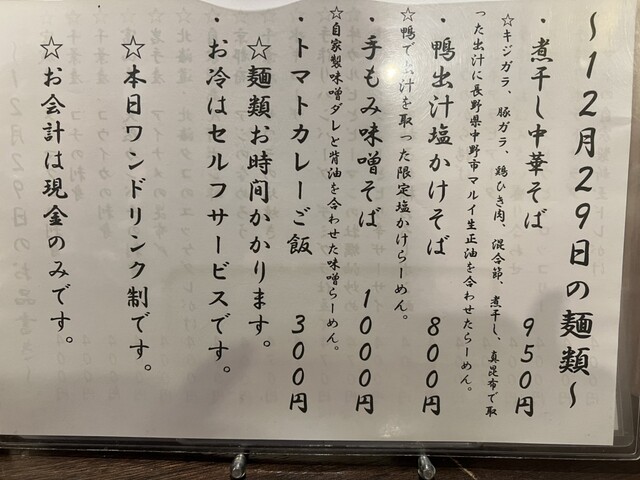 ～12月29日の麺類～
・煮干し中華そば 950円
☆キジガラ、豚ガラ、鶏ひき肉、混合節、煮干し、真昆布で取
った出汁に長野県中野市マルイ生正油を合わせたらーめん。
・鴨出汁塩かけそば 800円
☆鴨で出汁を取った限定塩かけらーめん。
・手もみ味噌そば 1000円
☆自家製味噌ダレと背油を合わせた味噌らーめん。
・トマトカレーご飯 300円
☆麺類お時間かかります。
・お冷はセルフサービスです。
☆本日ワンドリンク制です。
☆お会計は現金のみです。